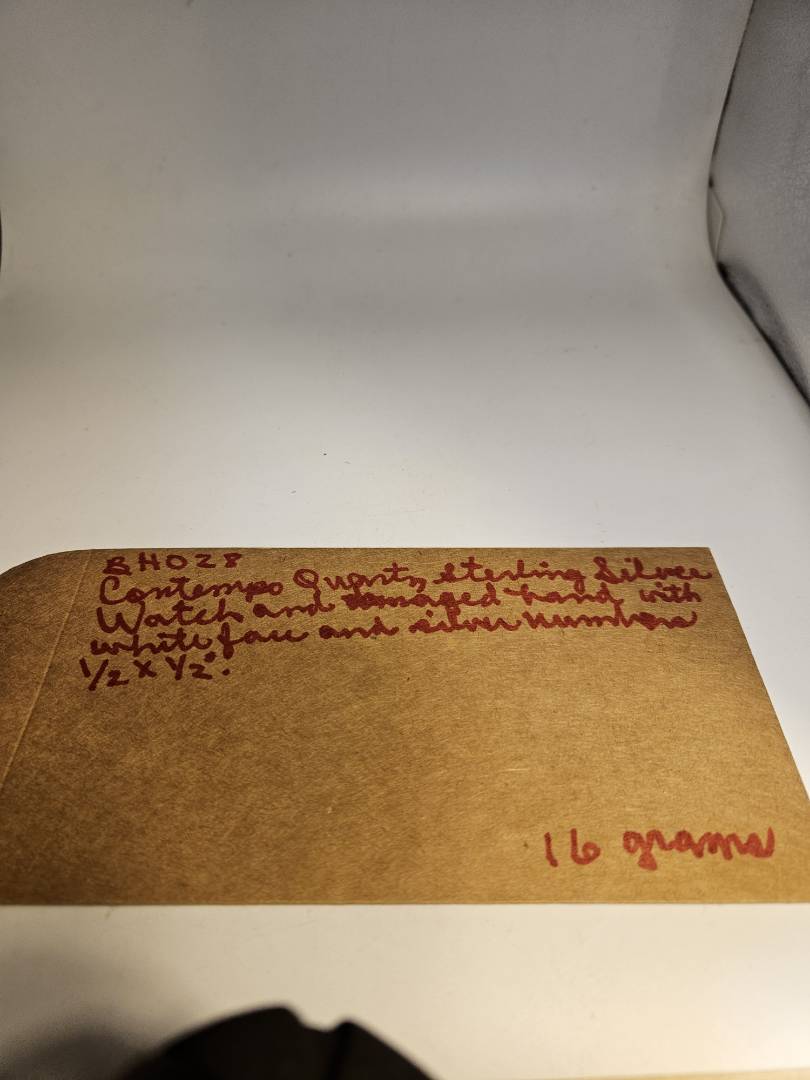 BH028
Contempo Quartz, Sterling Silver
Watch and damaged hand with
white face and silver numbers
1/2 X 1/2".
16 grams